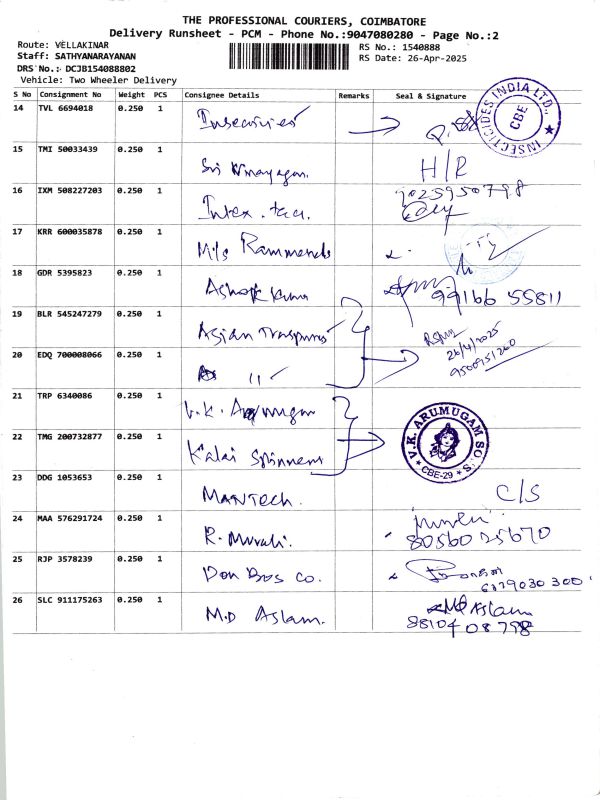 THE PROFESSIONAL COURIERS, COIMBATORE
Delivery Runsheet - PCM - Phone No.:9047080280 - Page No.:2
Route: VELLAKINAR
RS No.: 1540888
Staff: SATHYANARAYANAN
RS Date: 26-Apr-2025
DRS No.: DCJB154088802
Vehicle: Two Wheeler Delivery
S No Consignment No Weight PCS Consignee Details Remarks Seal & Signature
14 TVL 6694018 0.250 1
INSECTICIDES INDIA LTD., CBE
15 TMI 50033439 0.250 1 Sri Vinayagan. H/R
16 IXM 508227203 0.250 1 Intex. 9025950798
17 KRR 600035878 0.250 1 M/s
18 GDR 5395823 0.250 1 Ashok Kumar 99166 55811
19 BLR 545247279 0.250 1 Asian
26/4/2025
9500951260
20 EDQ 700008066 0.250 1 11
21 TRP 6340086 0.250 1 V.K. Arumugam
22 TMG 200732877 0.250 1 Kalai Spinners
V.K. ARUMUGAM SO CBE-29
23 DDG 1053653 0.250 1 MANTECH. C/S
24 MAA 576291724 0.250 1 R. Murali. 8056025670
25 RJP 3578239 0.250 1 Don Bos Co. 6379030300
26 SLC 911175263 0.250 1 M.D Aslam. MD Aslam
8810408798